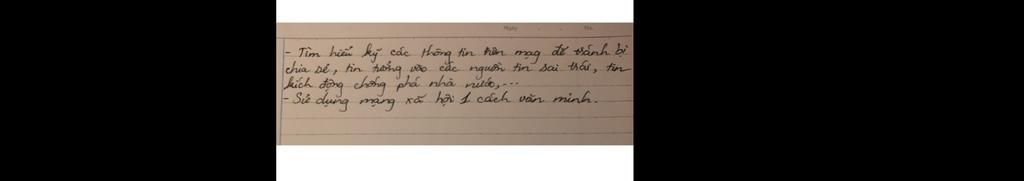 Ngày . . No.
- Tìm hiểu kỹ các thông tin trên mạg để tránh bị
chia sẻ, tin tưởng vào các nguồn tin sai trái, tin
kích động chống phá nhà nước,...
- Sử dụng mạng xã hội 1 cách văn minh.